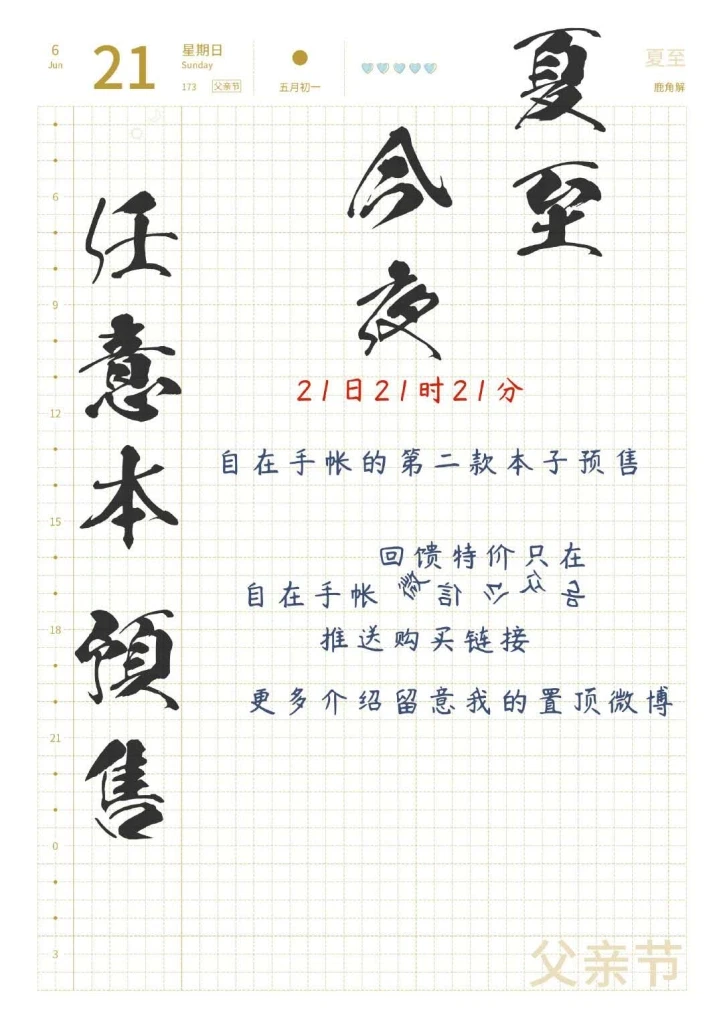 6
Jun
21
星期日
Sunday
173
父亲节
五月初一
夏至
鹿角解
夏至
今夜
任意本預售
21日21时21分
自在手帐的第二款本子预售
回馈特价只在
自在手帐微信公众号
推送购买链接
更多介绍留意我的置顶微博
6
9
12
15
18
21
0
3
父亲节